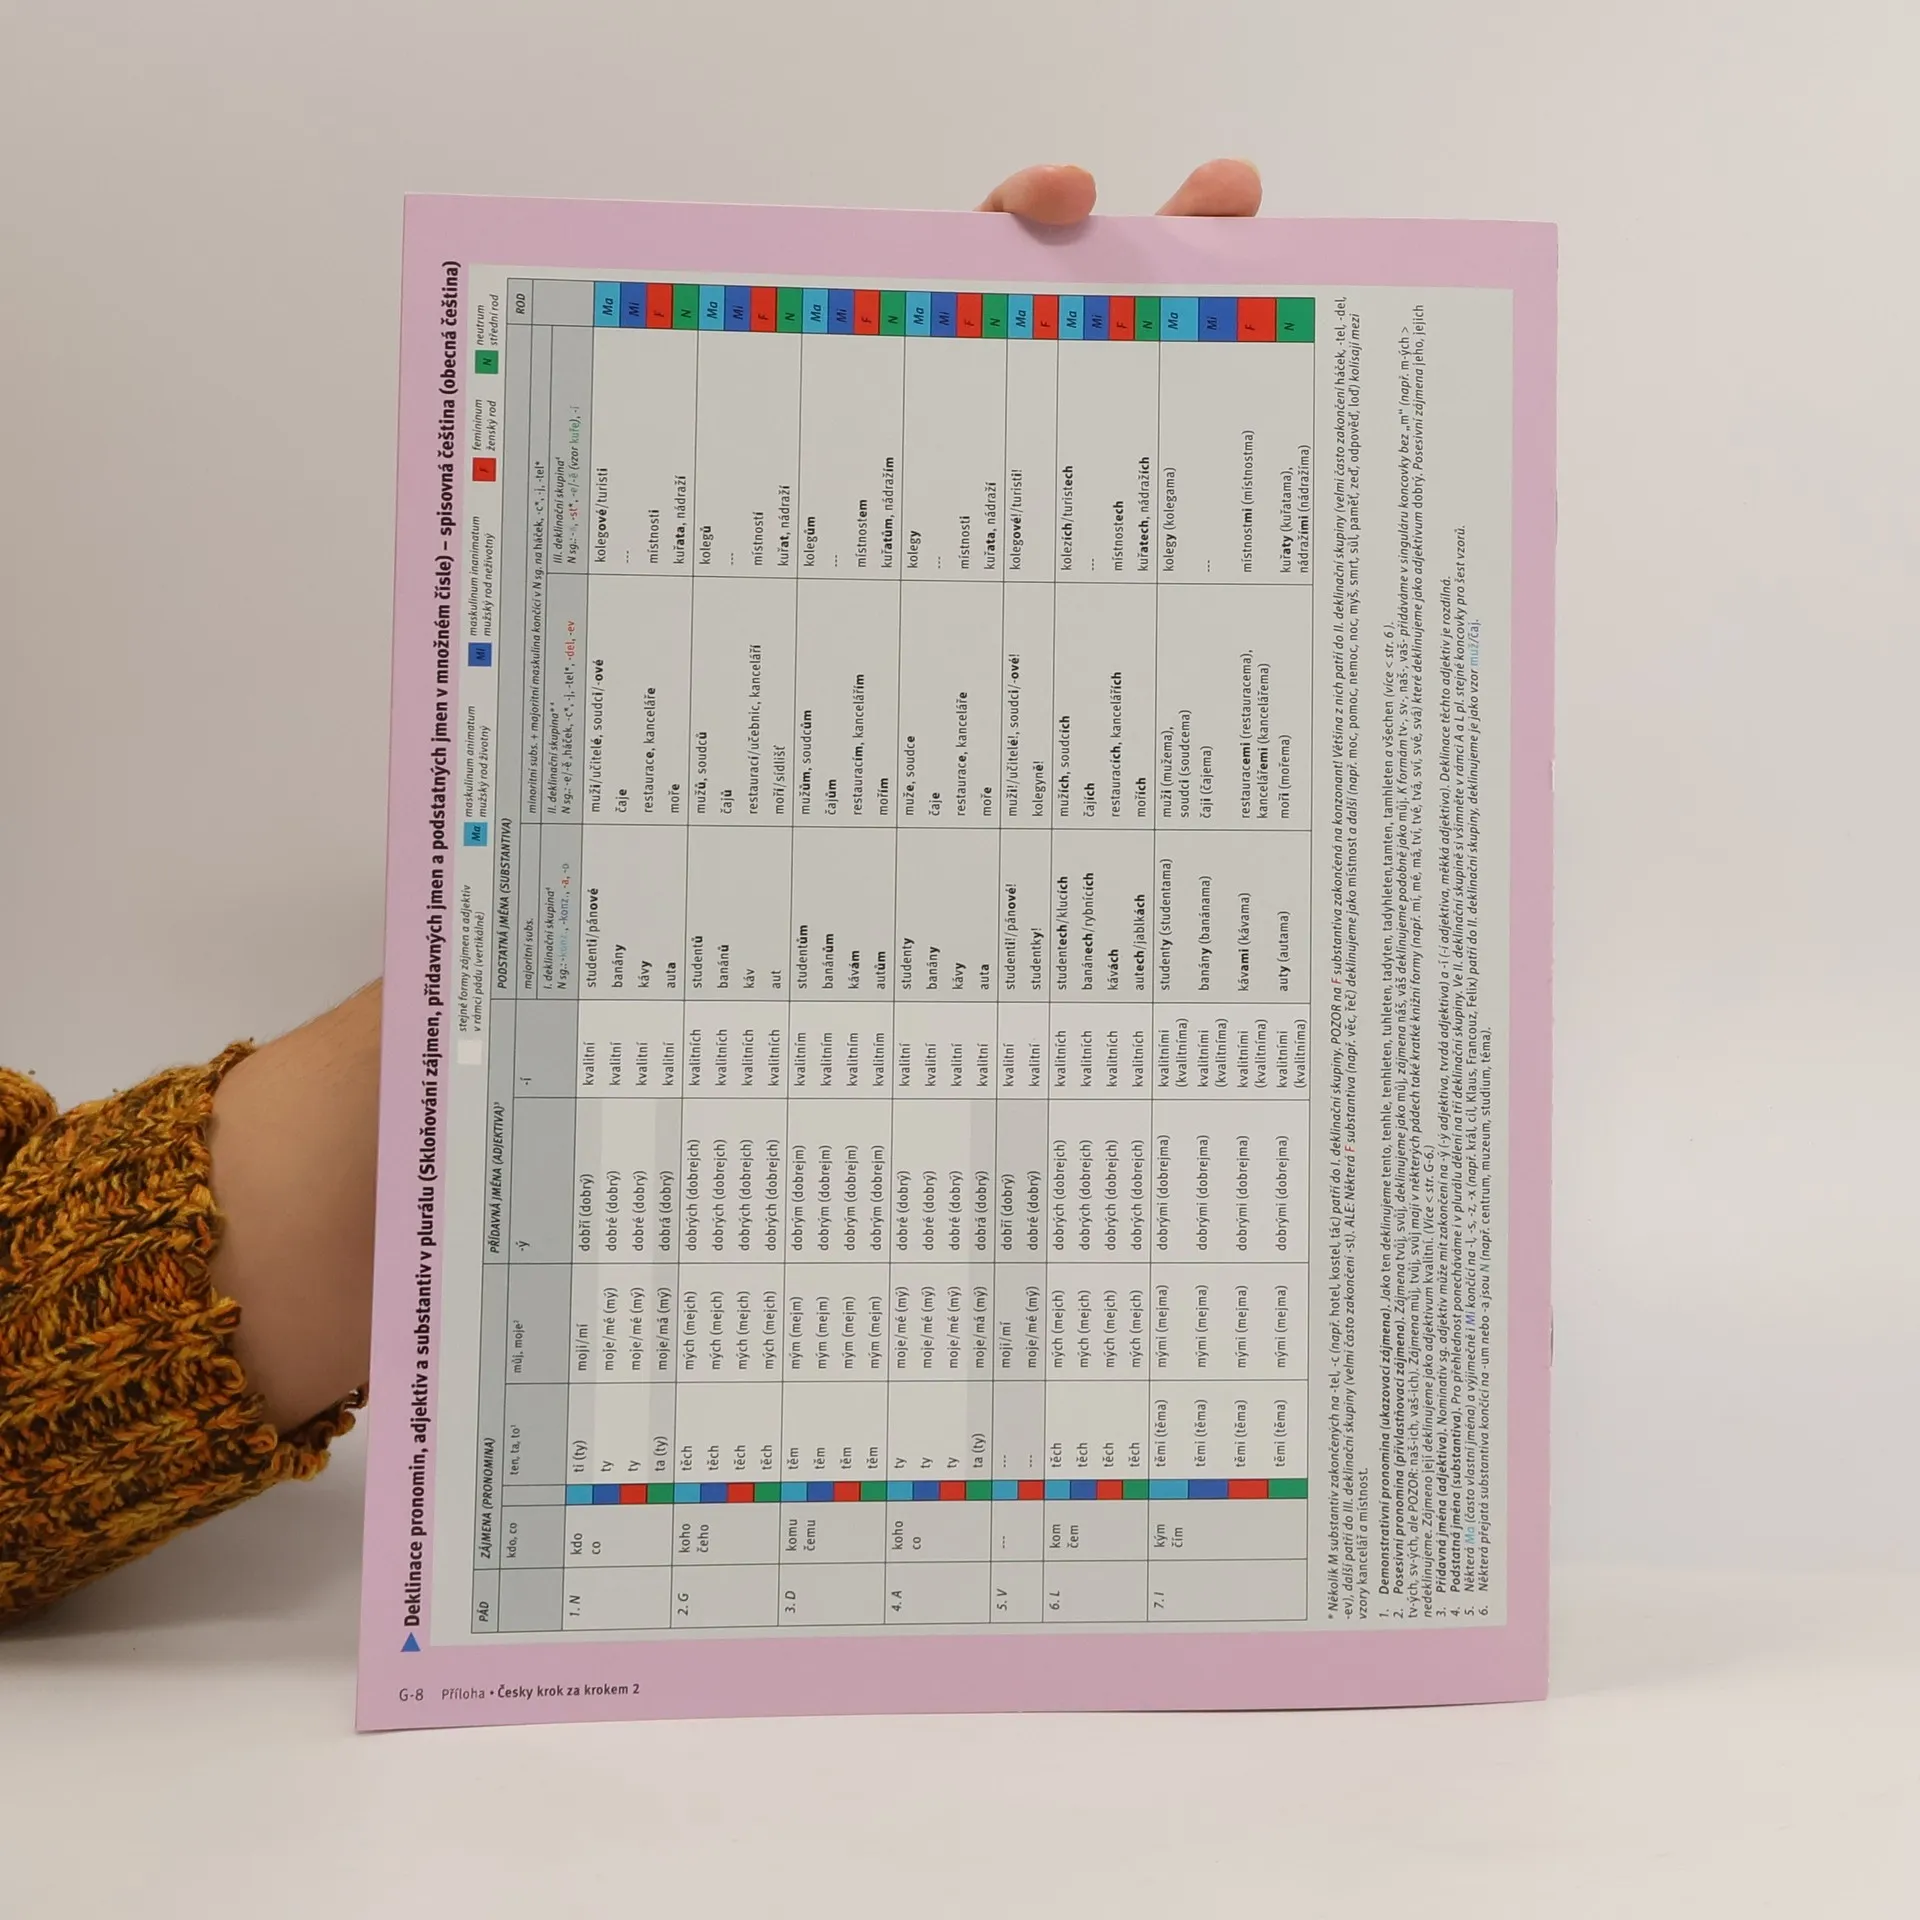 Deklinace pronomin, adjektiv a substantiv v plurálu (Skloňování zájmen, přídavných jmen a podstatných jmen v množném čísle) – spisovná čeština (obecná čeština)
stejné formy zájmen a adjektiv v rámci pádu (vertikálně)
Ma maskulinum animatum mužský rod životný
Mi maskulinum inanimatum mužský rod neživotný
F femininum ženský rod
N neutrum střední rod
PÁD ZÁJMENA (PRONOMINA) PŘÍDAVNÁ JMÉNA (ADJEKTIVA)³ PODSTATNÁ JMÉNA (SUBSTANTIVA) ROD
kdo, co ten, ta, to¹ můj, moje² -ý -í majoritní subs. minoritní subs. + majoritní maskulina končící v N sg. na háček, -c*, -j, -tel*
I. deklinační skupina⁴ II. deklinační skupina*⁴ III. deklinační skupina⁴
N sg.: -konz., -konz., -a, -o N sg.: -e/-ě, háček, -c*, -j, -tel*, -del, -ev N sg.: -a, -st*, -e/-ě (vzor kuře), -í
1. N kdo ti (ty) moji/mí dobří (dobrý) kvalitní studenti/pánové muži/učitelé, soudci/-ové kolegové/turisti Ma
co ty moje/mé (mý) dobré (dobrý) kvalitní banány čaje --- Mi
ty moje/mé (mý) dobré (dobrý) kvalitní kávy restaurace, kanceláře místnosti F
ta (ty) moje/má (mý) dobrá (dobrý) kvalitní auta moře kuřata, nádraží N
2. G koho těch mých (mejch) dobrých (dobrejch) kvalitních studentů mužů, soudců kolegů Ma
čeho těch mých (mejch) dobrých (dobrejch) kvalitních banánů čajů --- Mi
těch mých (mejch) dobrých (dobrejch) kvalitních káv restaurací/učebnic, kanceláří místností F
těch mých (mejch) dobrých (dobrejch) kvalitních aut moří/sídlišť kuřat, nádraží N
3. D komu těm mým (mejm) dobrým (dobrejm) kvalitním studentům mužům, soudcům kolegům Ma
čemu těm mým (mejm) dobrým (dobrejm) kvalitním banánům čajům --- Mi
těm mým (mejm) dobrým (dobrejm) kvalitním kávám restauracím, kancelářím místnostem F
těm mým (mejm) dobrým (dobrejm) kvalitním autům mořím kuřatům, nádražím N
4. A koho ty moje/mé (mý) dobré (dobrý) kvalitní studenty muže, soudce kolegy Ma
co ty moje/mé (mý) dobré (dobrý) kvalitní banány čaje --- Mi
ty moje/mé (mý) dobré (dobrý) kvalitní kávy restaurace, kanceláře místnosti F
ta (ty) moje/má (mý) dobrá (dobrý) kvalitní auta moře kuřata, nádraží N
5. V --- --- moji/mí dobří (dobrý) kvalitní studenti!/pánové! muži!/učitelé!, soudci/-ové! kolegové!/turisti! Ma
--- moje/mé (mý) dobré (dobrý) kvalitní studentky! kolegyně! F
6. L kom těch mých (mejch) dobrých (dobrejch) kvalitních studentech/klucích mužích, soudcích kolezích/turistech Ma
čem těch mých (mejch) dobrých (dobrejch) kvalitních banánech/rybnících čajích --- Mi
těch mých (mejch) dobrých (dobrejch) kvalitních kávách restauracích, kancelářích místnostech F
těch mých (mejch) dobrých (dobrejch) kvalitních autech/jablkách mořích kuřatech, nádražích N
7. I kým těmi (těma) mými (mejma) dobrými (dobrejma) kvalitními (kvalitníma) studenty (studentama) muži (mužema), soudci (soudcema) kolegy (kolegama) Ma
čím těmi (těma) mými (mejma) dobrými (dobrejma) kvalitními (kvalitníma) banány (banánama) čaji (čajema) --- Mi
těmi (těma) mými (mejma) dobrými (dobrejma) kvalitními (kvalitníma) kávami (kávama) restauracemi (restauracema), kancelářemi (kancelářema) místnostmi (místnostma) F
těmi (těma) mými (mejma) dobrými (dobrejma) kvalitními (kvalitníma) auty (autama) moři (mořema) kuřaty (kuřatama), nádražími (nádražíma) N
* Několik M substantiv zakončených na -tel, -c (např. hotel, kostel, tác) patří do I. deklinační skupiny. POZOR na F substantiva zakončená na konzonant! Většina z nich patří do II. deklinační skupiny (velmi často zakončení háček, -tel, -del,
-ev), další patří do III. deklinační skupiny (velmi často zakončení -st). ALE: Některá F substantiva (např. věc, řeč) deklinujeme jako místnost a další (např. moc, pomoc, nemoc, noc, myš, smrt, sůl, paměť, zeď, odpověď, loď) kolísají mezi
vzory kancelář a místnost.
1. Demonstrativní pronomina (ukazovací zájmena). Jako ten deklinujeme tento, tenhle, tenhleten, tuhleten, tadyten, tadyhleten, tamten, tamhleten a všechen (více < str. 6).
2. Posesivní pronomina (přivlastňovací zájmena). Zájmena tvůj, svůj, deklinujeme jako můj, zájmena náš, váš deklinujeme podobně jako můj. K formám tv-, sv-, naš-, vaš- přidáváme v singuláru koncovky bez „m“ (např. m-ých >
tv-ých, sv-ých, ale POZOR: naš-ich, vaš-ich). Zájmena můj, tvůj, svůj mají v některých pádech také kratké knižní formy (např. mí, mé, má, tví, tvé, tvá, sví, své, svá) které deklinujeme jako adjektivum dobrý. Posesivní zájmena jeho, jejich
nedeklinujeme. Zájmeno její deklinujeme jako adjektivum kvalitní. (Více < str. G-6.)
3. Přídavná jména (adjektiva). Nominativ sg. adjektiv může mít zakončení na -ý (-ý adjektiva, tvrdá adjektiva) a -í (-í adjektiva, měkká adjektiva). Deklinace těchto adjektiv je rozdílná.
4. Podstatná jména (substantiva). Pro přehlednost ponecháváme i v plurálu dělení na tři deklinační skupiny. Ve II. deklinační skupině si všimněte v rámci A a L pl. stejné koncovky pro šest vzorů.
5. Některá Ma (často vlastní jména) a výjimečně i Mi končící na -l, -s, -z, -x (např. král, cíl, Klaus, Francouz, Felix) patří do II. deklinační skupiny, deklinujeme je jako vzor muž/čaj.
6. Některá přejatá substantiva končící na -um nebo -a jsou N (např. centrum, muzeum, studium, téma).
G-8 Příloha • Česky krok za krokem 2